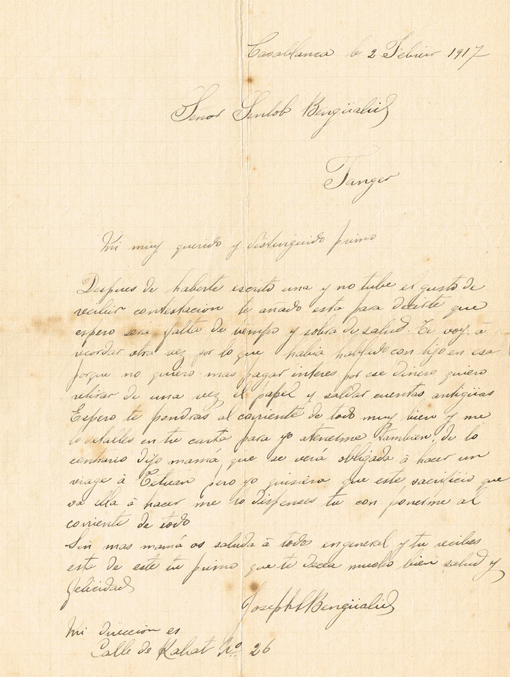 Casablanca le 2 Febrier 1917
Señor Semtob Bengüalid
Tanger
Mi muy querido y distinguido primo
Despues de haberte escrito una y no tube el gusto de
recibir contestacion te añado esta para decirte que
espero sera falta de tiempo y sobra de salud. Te voy a
recordar otra vez por lo que habia hablado con hijo en esa
porque no quiero mas pagar interes por ese dinero quiero
retirar de una vez el papel y saldar cuentas antigüas
Espero te pondras al corriente de todo muy bien y me
lo detalles en tu carta para yo atenerme tambien, de lo
contrario dijo mamá que se verá obligada á hacer un
viage á Tetuan pero yo quisiera que este sacrificio que
va ella á hacer me lo dispenses tu con ponerme al
corriente de todo
Sin mas mamá os saluda á todos en general y tu recibes
este de este tu primo que te desea mucho bien salud y
felicidad
Joseph Bengüalid
Mi direccion es
Calle de Rabat Nº 26